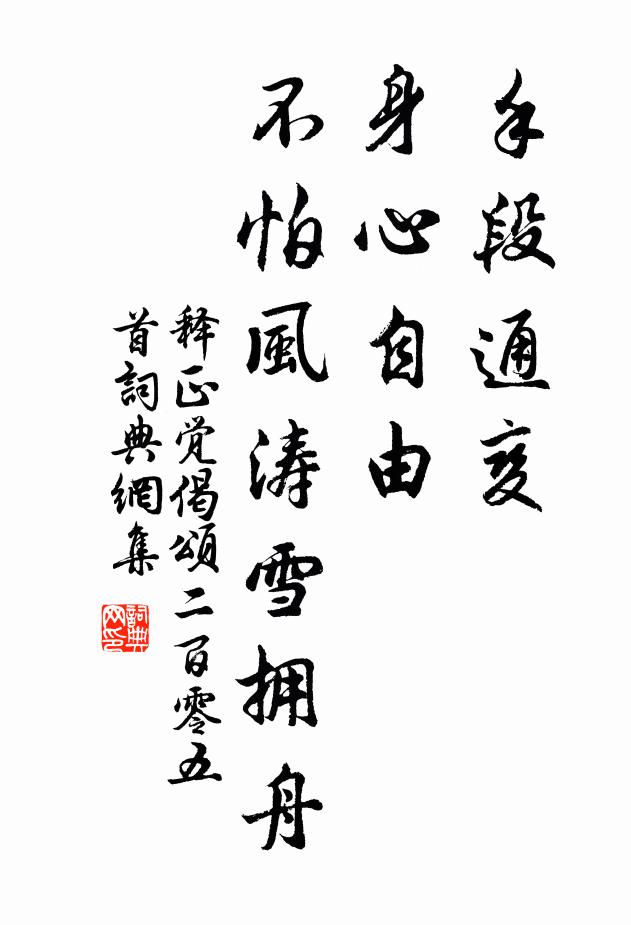 手段通变
身心自由
不怕風涛雪拥舟
释正觉偈頌二百零五
首詞典網集
詞典网印